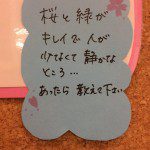 桜と緑が
キレイで人が
少なくて静かな
ところ…
あったら教えて下さい